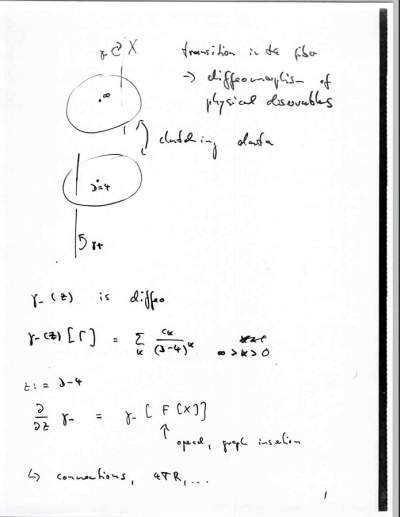 γ- ↻ X
transition in the fiber
→ diffeomorphism of
physical observables
∞
clutching data
D=4
γ+
γ-(z) is diffeo
γ-(z)[Γ] = Σ_k c_k/(D-4)^k ∞>k>0
z := D-4
∂/∂z γ- = γ-[F[X]]
↑ operad, graph insertion
↳ connections, 4TR,...
1